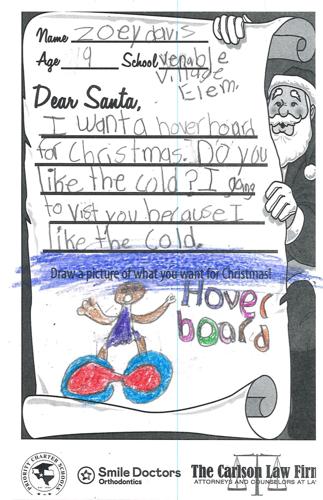 Name zoey davis
Age 9 School venable
Village
Elem.
Dear Santa,
I want a hoverboard
for Christmas. Do you
like the cold? I going
to vist you because I
like the cold.
Draw a picture of what you want for Christmas!
Hover
board
PRIORITY CHARTER SCHOOLS
Smile Doctors
Orthodontics
The Carlson Law Firm
ATTORNEYS AND COUNSELORS AT LA